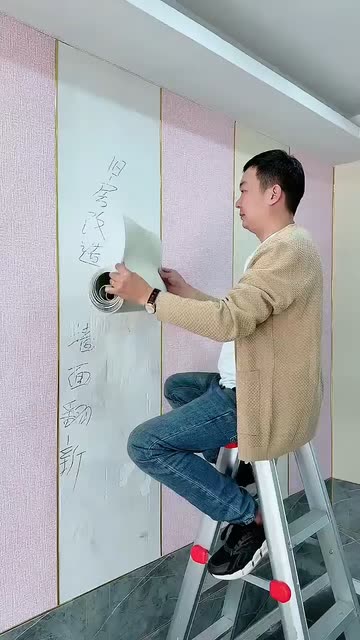 旧房改造
墙面翻新